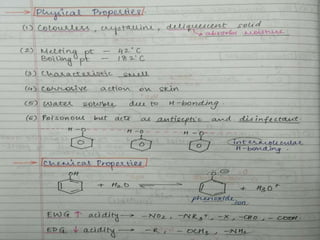 → Physical Properties
(1) Colourless, crystalline, deliquescent solid
→ absorbs moisture
(2) Melting pt — 42°C
Boiling pt — 182°C
(3) Characteristic smell
(4) Corrosive action on skin
(5) Water soluble due to H-bonding
(6) Poisonous but act as antiseptic and disinfectant
H — O H — O H — O
Intermolecular
H-bonding.
→ Chemical Properties
OH O
+ H2O ⇌ + H3O+
phenoxide ion
EWG ↑ acidity → -NO2, -NR3+, -X, -CHO, -COOH
EDG ↓ acidity → -R, -OCH3, -NH2